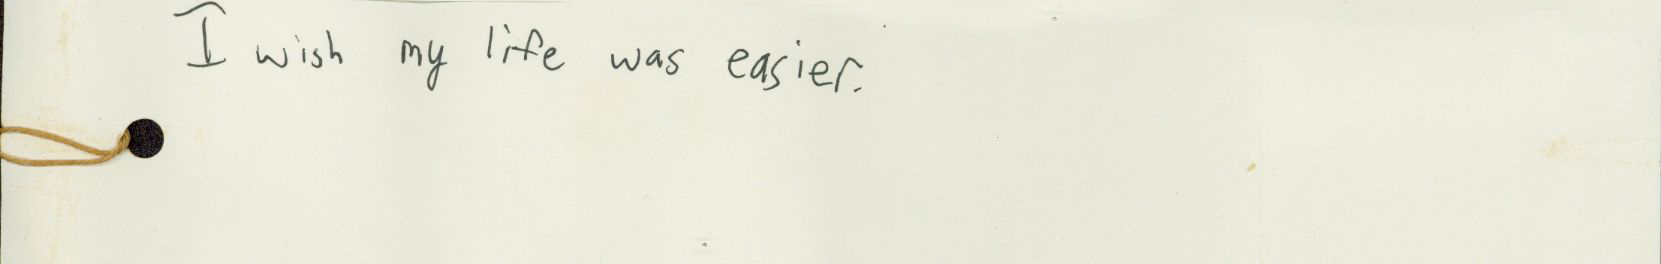 I wish my life was easier.